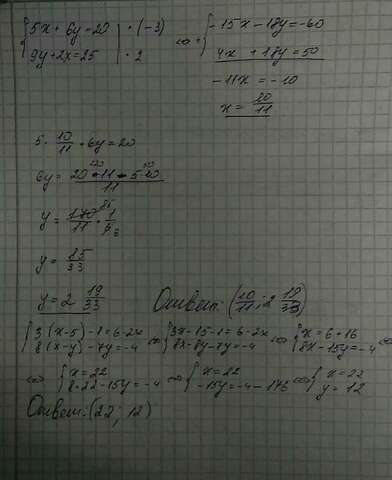 {5x + 6y = 20 | · (-3)
{9y + 2x = 25 | · 2
⇔ + {-15x - 18y = -60
4x + 18y = 50
-11x = -10
x = 10/11
5 · 10/11 + 6y = 20
6y = (20 · 11 - 5 · 10)/11
y = 170/11 · 1/6
y = 85/33
y = 2 19/33
Ответ: (10/11; 2 19/33)
{3(x-5)-1=6-2x ⇔ {3x-15-1=6-2x ⇔ {x=6+16 ⇔
{8(x-y)-7y=-4 {8x-8y-7y=-4 {8x-15y=-4
⇔ {x=22 ⇔ {x=22 ⇔ {x=22
{8·22-15y=-4 {-15y=-4-176 {y=12
Ответ: (22; 12)